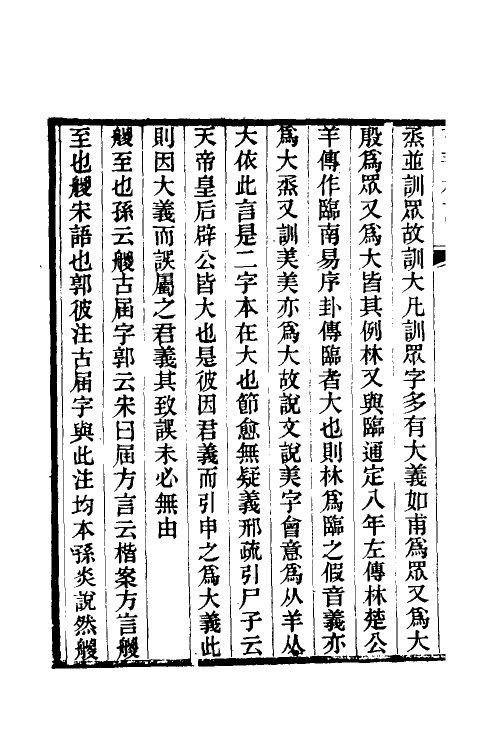 烝並訓眾故訓大凡訓眾字多有大義如甫爲眾又爲大
殷爲眾又爲大皆其例林又與臨通定八年左傳林楚公
羊傳作臨南易序卦傳臨者大也則林爲臨之假音義亦
爲大烝又訓美美亦爲大故說文說美字會意爲从羊从
大依此言是二字本在大也節愈無疑義邢疏引尸子云
天帝皇后辟公皆大也是彼因君義而引申之爲大義此
則因大義而誤屬之君義其致誤未必無由
艐至也孫云艐古屆字郭云宋曰屆方言云楷案方言艐
至也艐宋語也郭彼注古屆字與此注均本孫炎說然艐